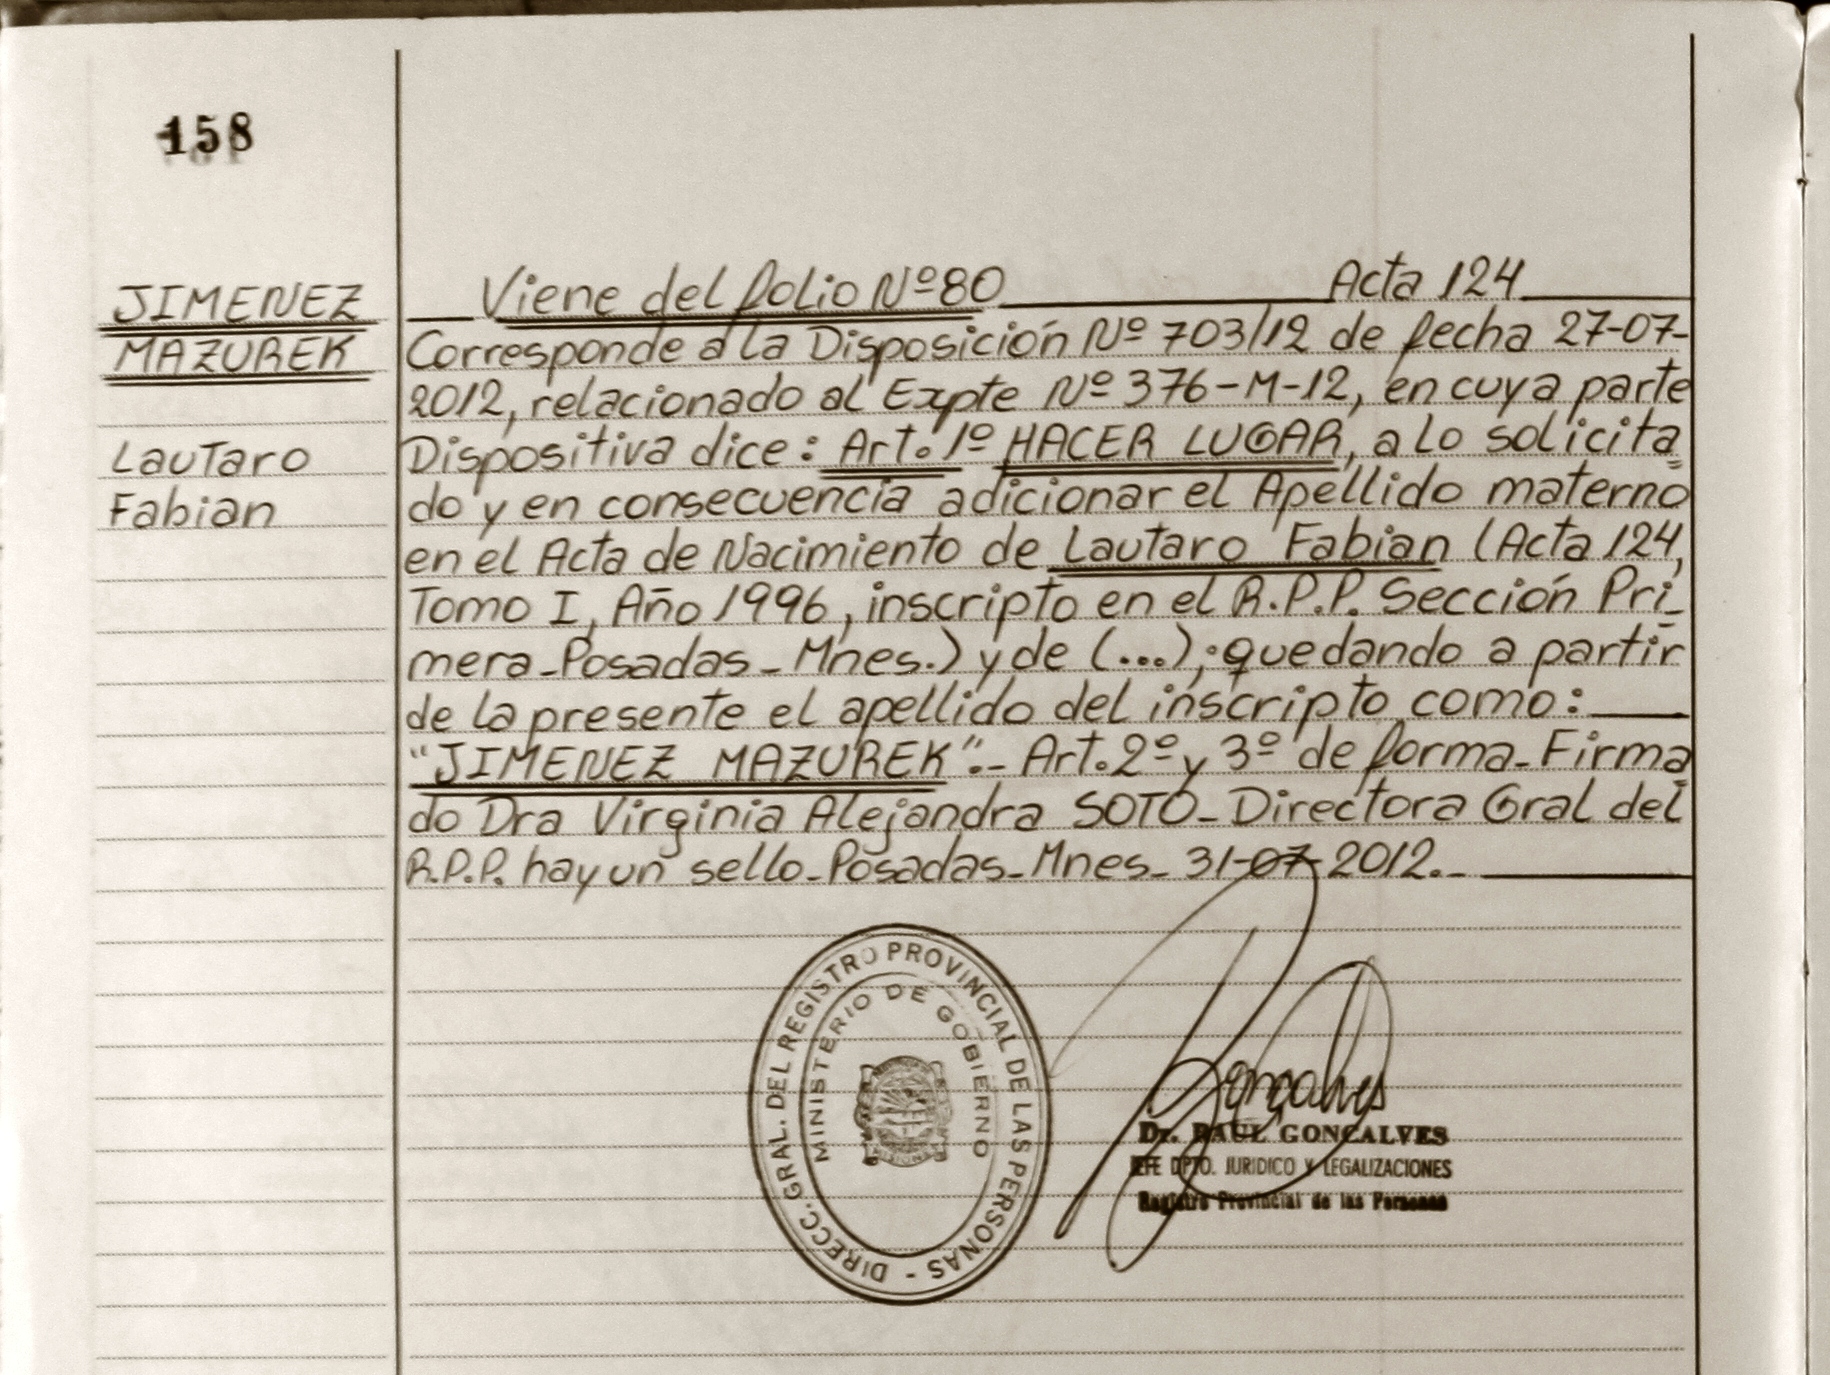 158
JIMENEZ
MAZUREK
Lautaro
Fabian
Viene del folio Nº 80 Acta 124
Corresponde a la Disposición Nº 703/12 de fecha 27-07-
2012, relacionado al Expte Nº 376-M-12, en cuya parte
Dispositiva dice: Art. 1º HACER LUGAR, a lo solicita
do y en consecuencia adicionar el Apellido materno
en el Acta de Nacimiento de Lautaro Fabian (Acta 124,
Tomo I, Año 1996, inscripto en el R.P.P. Sección Pri_
mera_Posadas_Mnes.) y de (...); quedando a partir
de la presente el apellido del inscripto como:
"JIMENEZ MAZUREK".- Art. 2º y 3º de forma_Firma
do Dra Virginia Alejandra SOTO_Directora Gral del
R.P.P. hay un sello_Posadas_Mnes_31-07-2012._
DIRECC. GRAL. DEL REGISTRO PROVINCIAL DE LAS PERSONAS -
MINISTERIO DE GOBIERNO
MISIONES
Goncalves
Dr. RAUL GONCALVES
JEFE DPTO. JURIDICO Y LEGALIZACIONES
Registro Provincial de las Personas